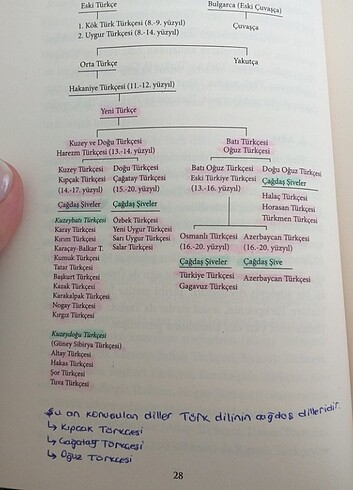 Eski Türkçe
Bulgarca (Eski Çuvaşça)
1. Kök Türk Türkçesi (8.-9. yüzyıl)
2. Uygur Türkçesi (8.-14. yüzyıl)
Çuvaşça
Orta Türkçe
Yakutça
Hakaniye Türkçesi (11.-12. yüzyıl)
Yeni Türkçe
Kuzey ve Doğu Türkçesi
Harezm Türkçesi (13.-14. yüzyıl)
Batı Türkçesi
Oğuz Türkçesi
Kuzey Türkçesi
Kıpçak Türkçesi
(14.-17. yüzyıl)
Çağdaş Şiveler
Doğu Türkçesi
Çağatay Türkçesi
(15.-20. yüzyıl)
Çağdaş Şiveler
Batı Oğuz Türkçesi
Eski Türkiye Türkçesi
(13.-16. yüzyıl)
Doğu Oğuz Türkçesi
Çağdaş Şiveler
Halaç Türkçesi
Horasan Türkçesi
Türkmen Türkçesi
Kuzeybatı Türkçesi
Karay Türkçesi
Kırım Türkçesi
Karaçay-Balkar T.
Kumuk Türkçesi
Tatar Türkçesi
Başkurt Türkçesi
Kazak Türkçesi
Karakalpak Türkçesi
Nogay Türkçesi
Kırgız Türkçesi
Özbek Türkçesi
Yeni Uygur Türkçesi
Sarı Uygur Türkçesi
Salar Türkçesi
Osmanlı Türkçesi
(16.-20. yüzyıl)
Çağdaş Şiveler
Türkiye Türkçesi
Gagavuz Türkçesi
Azerbaycan Türkçesi
(16.-20. yüzyıl)
Çağdaş Şive
Azerbaycan Türkçesi
Kuzeydoğu Türkçesi
(Güney Sibirya Türkçesi)
Altay Türkçesi
Hakas Türkçesi
Şor Türkçesi
Tuva Türkçesi
Şu an konuşulan diller Türk dilinin çağdaş dilleridir.
↳ Kıpçak Türkçesi
↳ Çağatay Türkçesi
↳ Oğuz Türkçesi
28